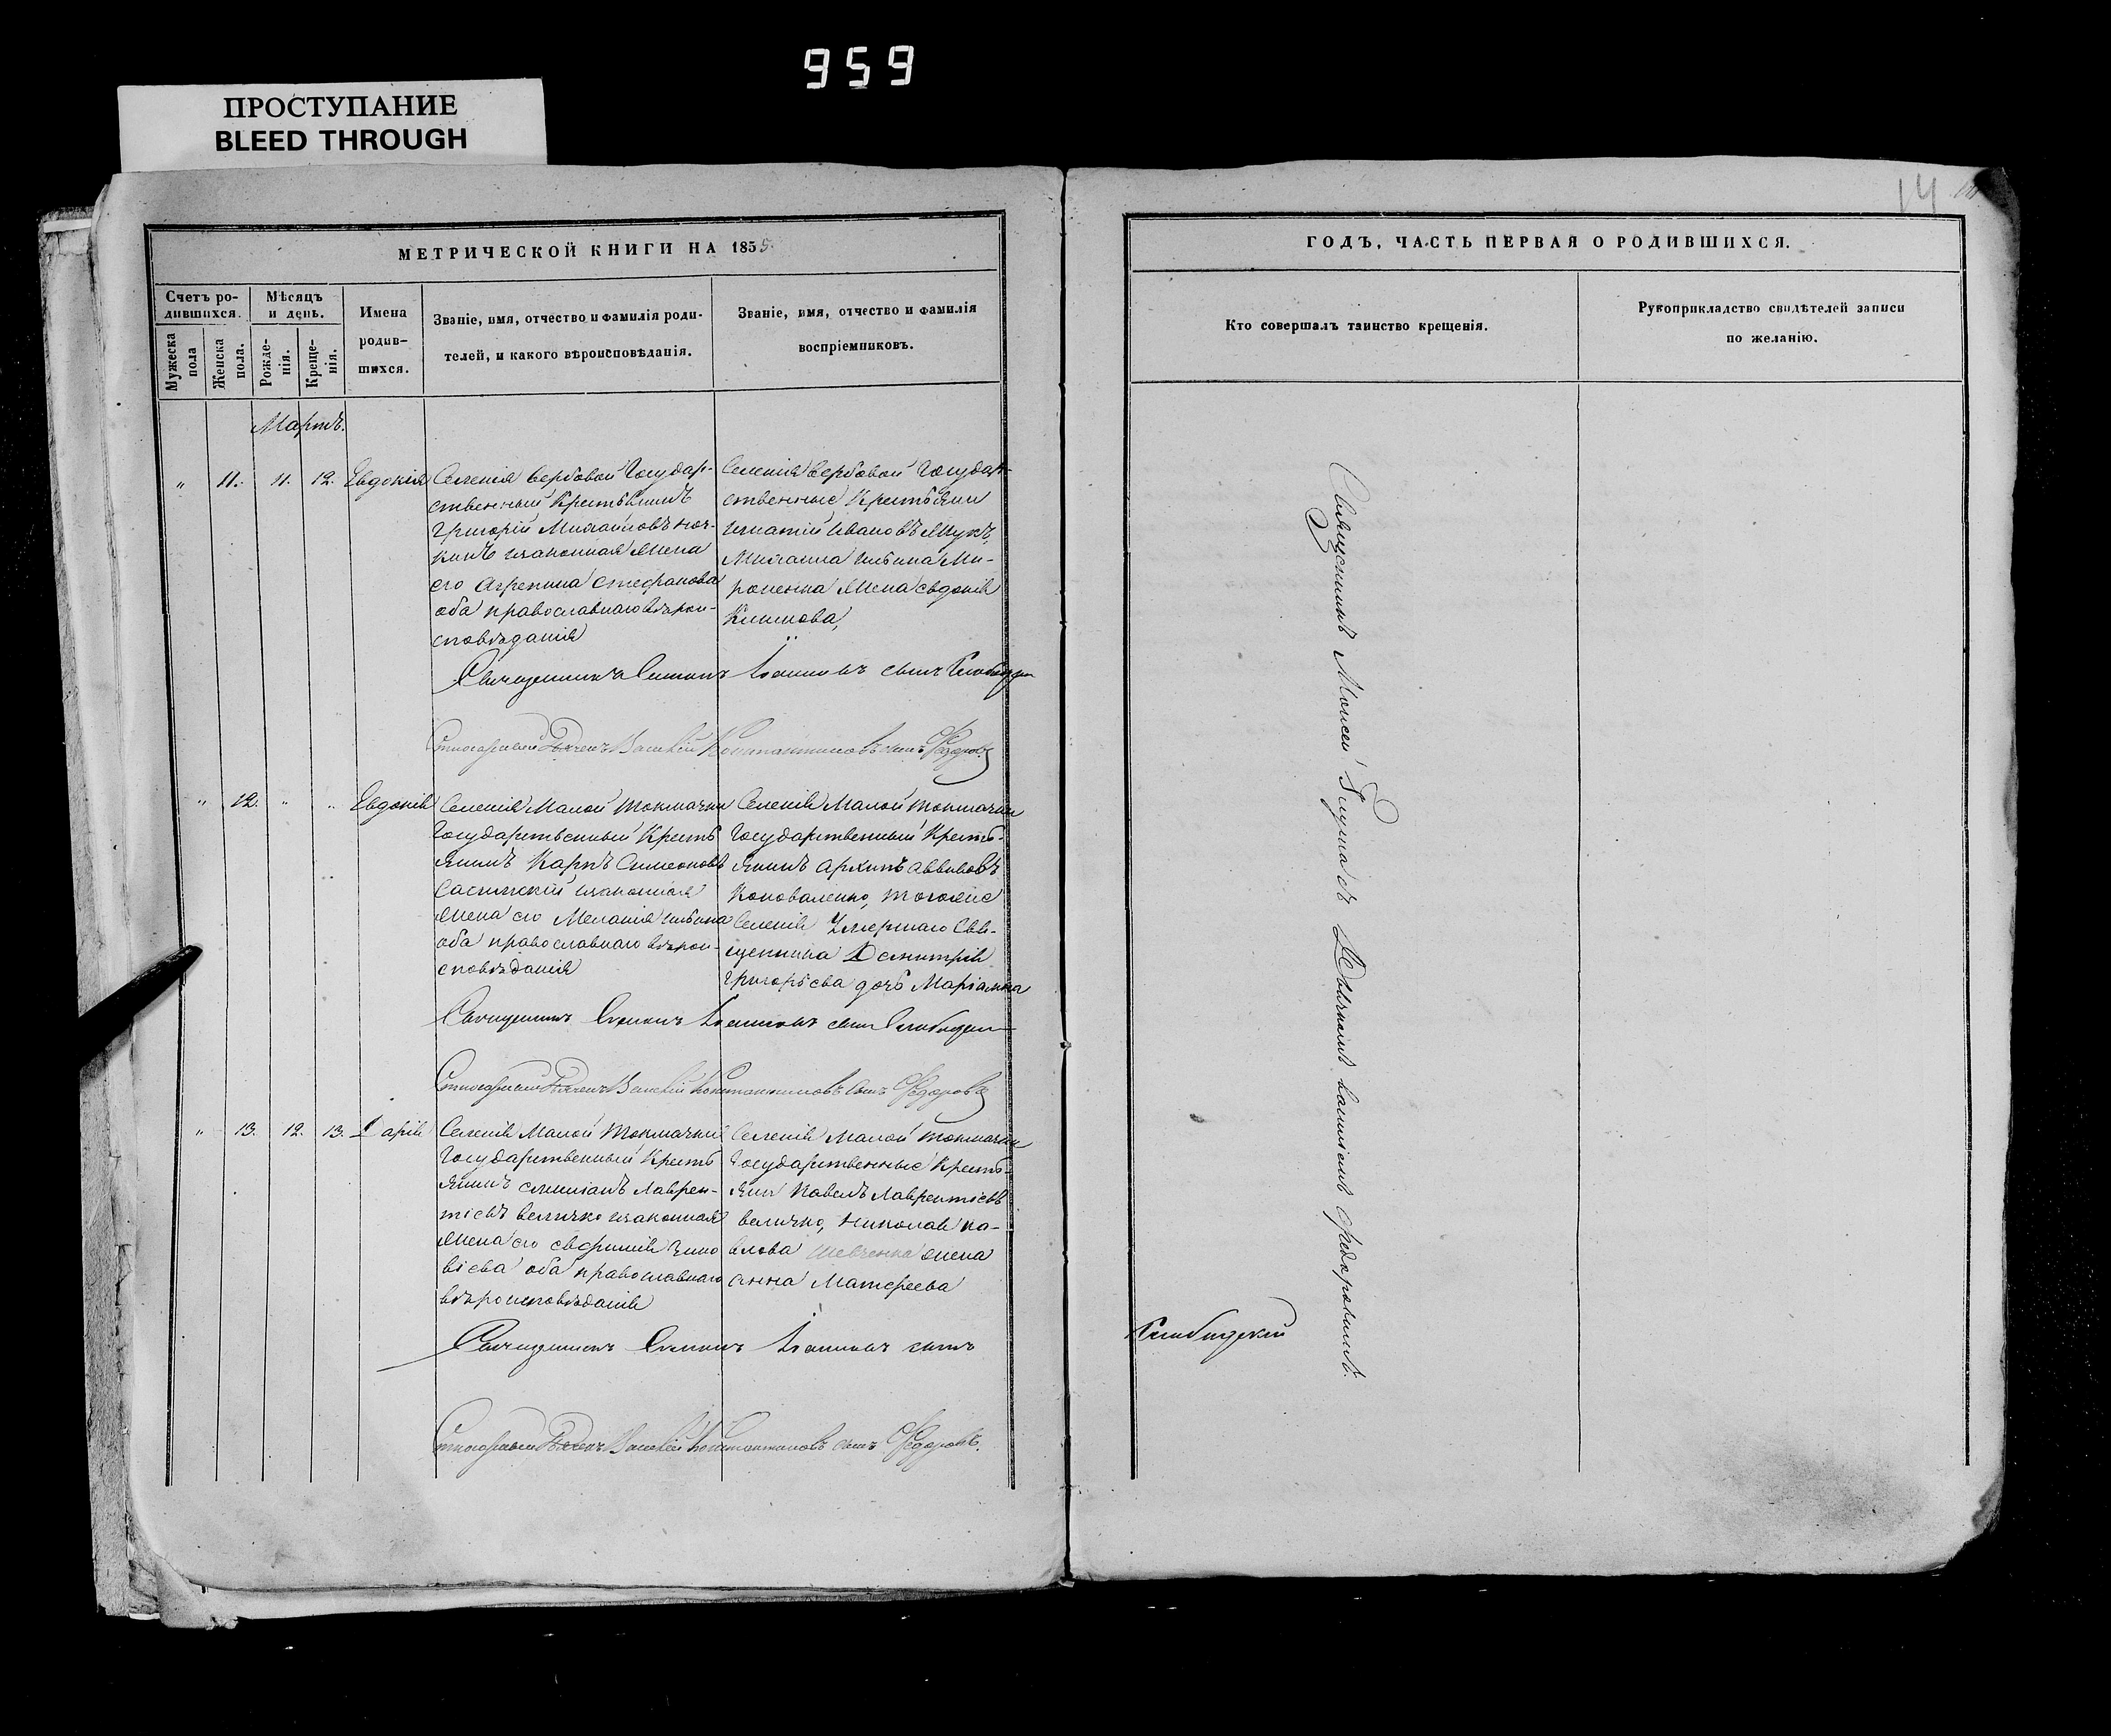 959
ПРОСТУПАНИЕ
BLEED THROUGH
14
МЕТРИЧЕСКОЙ КНИГИ НА 1855
Счетъ ро-
дившихся.
Мужеска
пола
Женска
пола.
Мѣсяцъ
и день.
Рожде-
нія.
Креще-
нія.
Имена
родив-
шихся.
Званіе, имя, отчество и фамилія роди-
телей, и какого вѣроисповѣданія.
Званіе, имя, отчество и фамилія
воспріемниковъ.
Мартъ.
" 11. 11. 12. Евдокія
Селенія Вербовой Государ-
ственный Крестьянинъ
Григорій Михайловъ
киъ изаконная Жена
его Агрепина Стефанова
оба православнаго вѣрои-
сповѣданія
Селенія Вербовой Государ-
ственные Крестьяни
Игнатій Ивановъ Жукъ,
Михаила Ильина Ми-
роненка Жена Евдокія
Климова,
Священникъ Симонъ Іоанновъ сынъ
Стихарный Дьячекъ Василій Константиновъ сынъ Федоровъ
" 12. " " Евдокія
Селенія Малой Токмачки
Государственный Кресть
янинъ Карпъ Симеоновъ
изаконная
Жена его Меланія Ильина
оба православнаго вѣрои-
сповѣданія
Селенія Малой Токмачки
Государственный Кресть-
янинъ Архипъ Аввивовъ
Коноваленко, тогоже
Селенія Умершаго Свя-
щенника Димитрія
Григорьева дочь Маріанна
Священникъ Симонъ Іоанновъ сынъ
Стихарный Дьячекъ Василій Константиновъ сынъ Федоровъ
" 13. 12. 13. Дарія
Селенія Малой Токмачки
Государственный Кресть
янинъ Емиліанъ Лаврен-
тіевъ Величко изаконная
Жена его Евфимія Зино
віева оба православнаго
вѣроисповѣданія
Селенія Малой Токмачки
Государственные Кресть-
яни Павелъ Лаврентіевъ
Величко, Николая Па-
влова Шевченка жена
Анна Матфеева
Священникъ Симонъ Іоанновъ сынъ
Стихарный Дьячекъ Василій Константиновъ сынъ Федоровъ.
ГОДЪ, ЧАСТЬ ПЕРВАЯ О РОДИВШИХСЯ.
Кто совершалъ таинство крещенія.
Рукоприкладство свидѣтелей записи
по желанію.
Священникъ Моисей съ Дьячкомъ Василіемъ Федоровымъ.